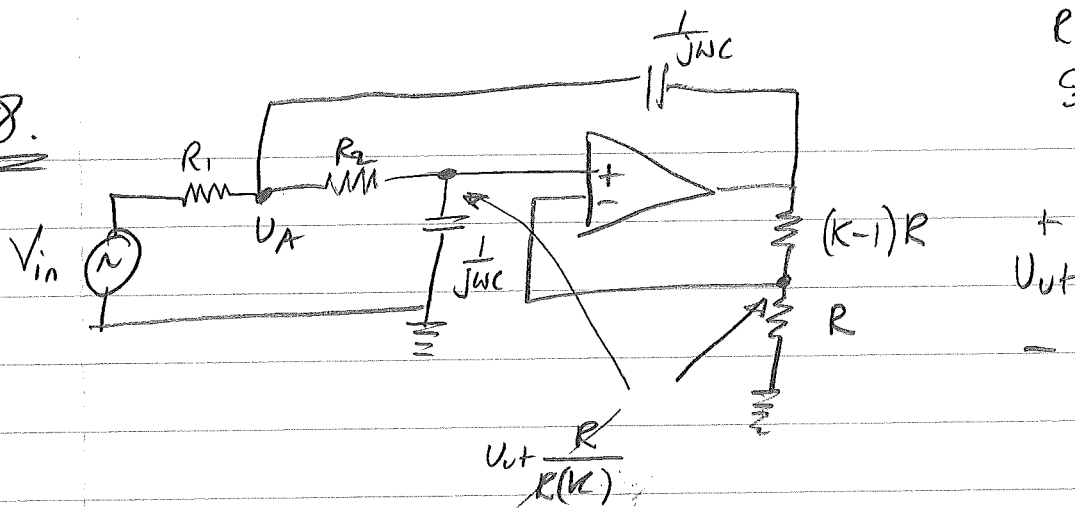 8.
1/jωC
R
R1
R2
UA
Vin
1/jωC
+
-
(K-1)R
R
+
Uut
-
Uut R/R(K)